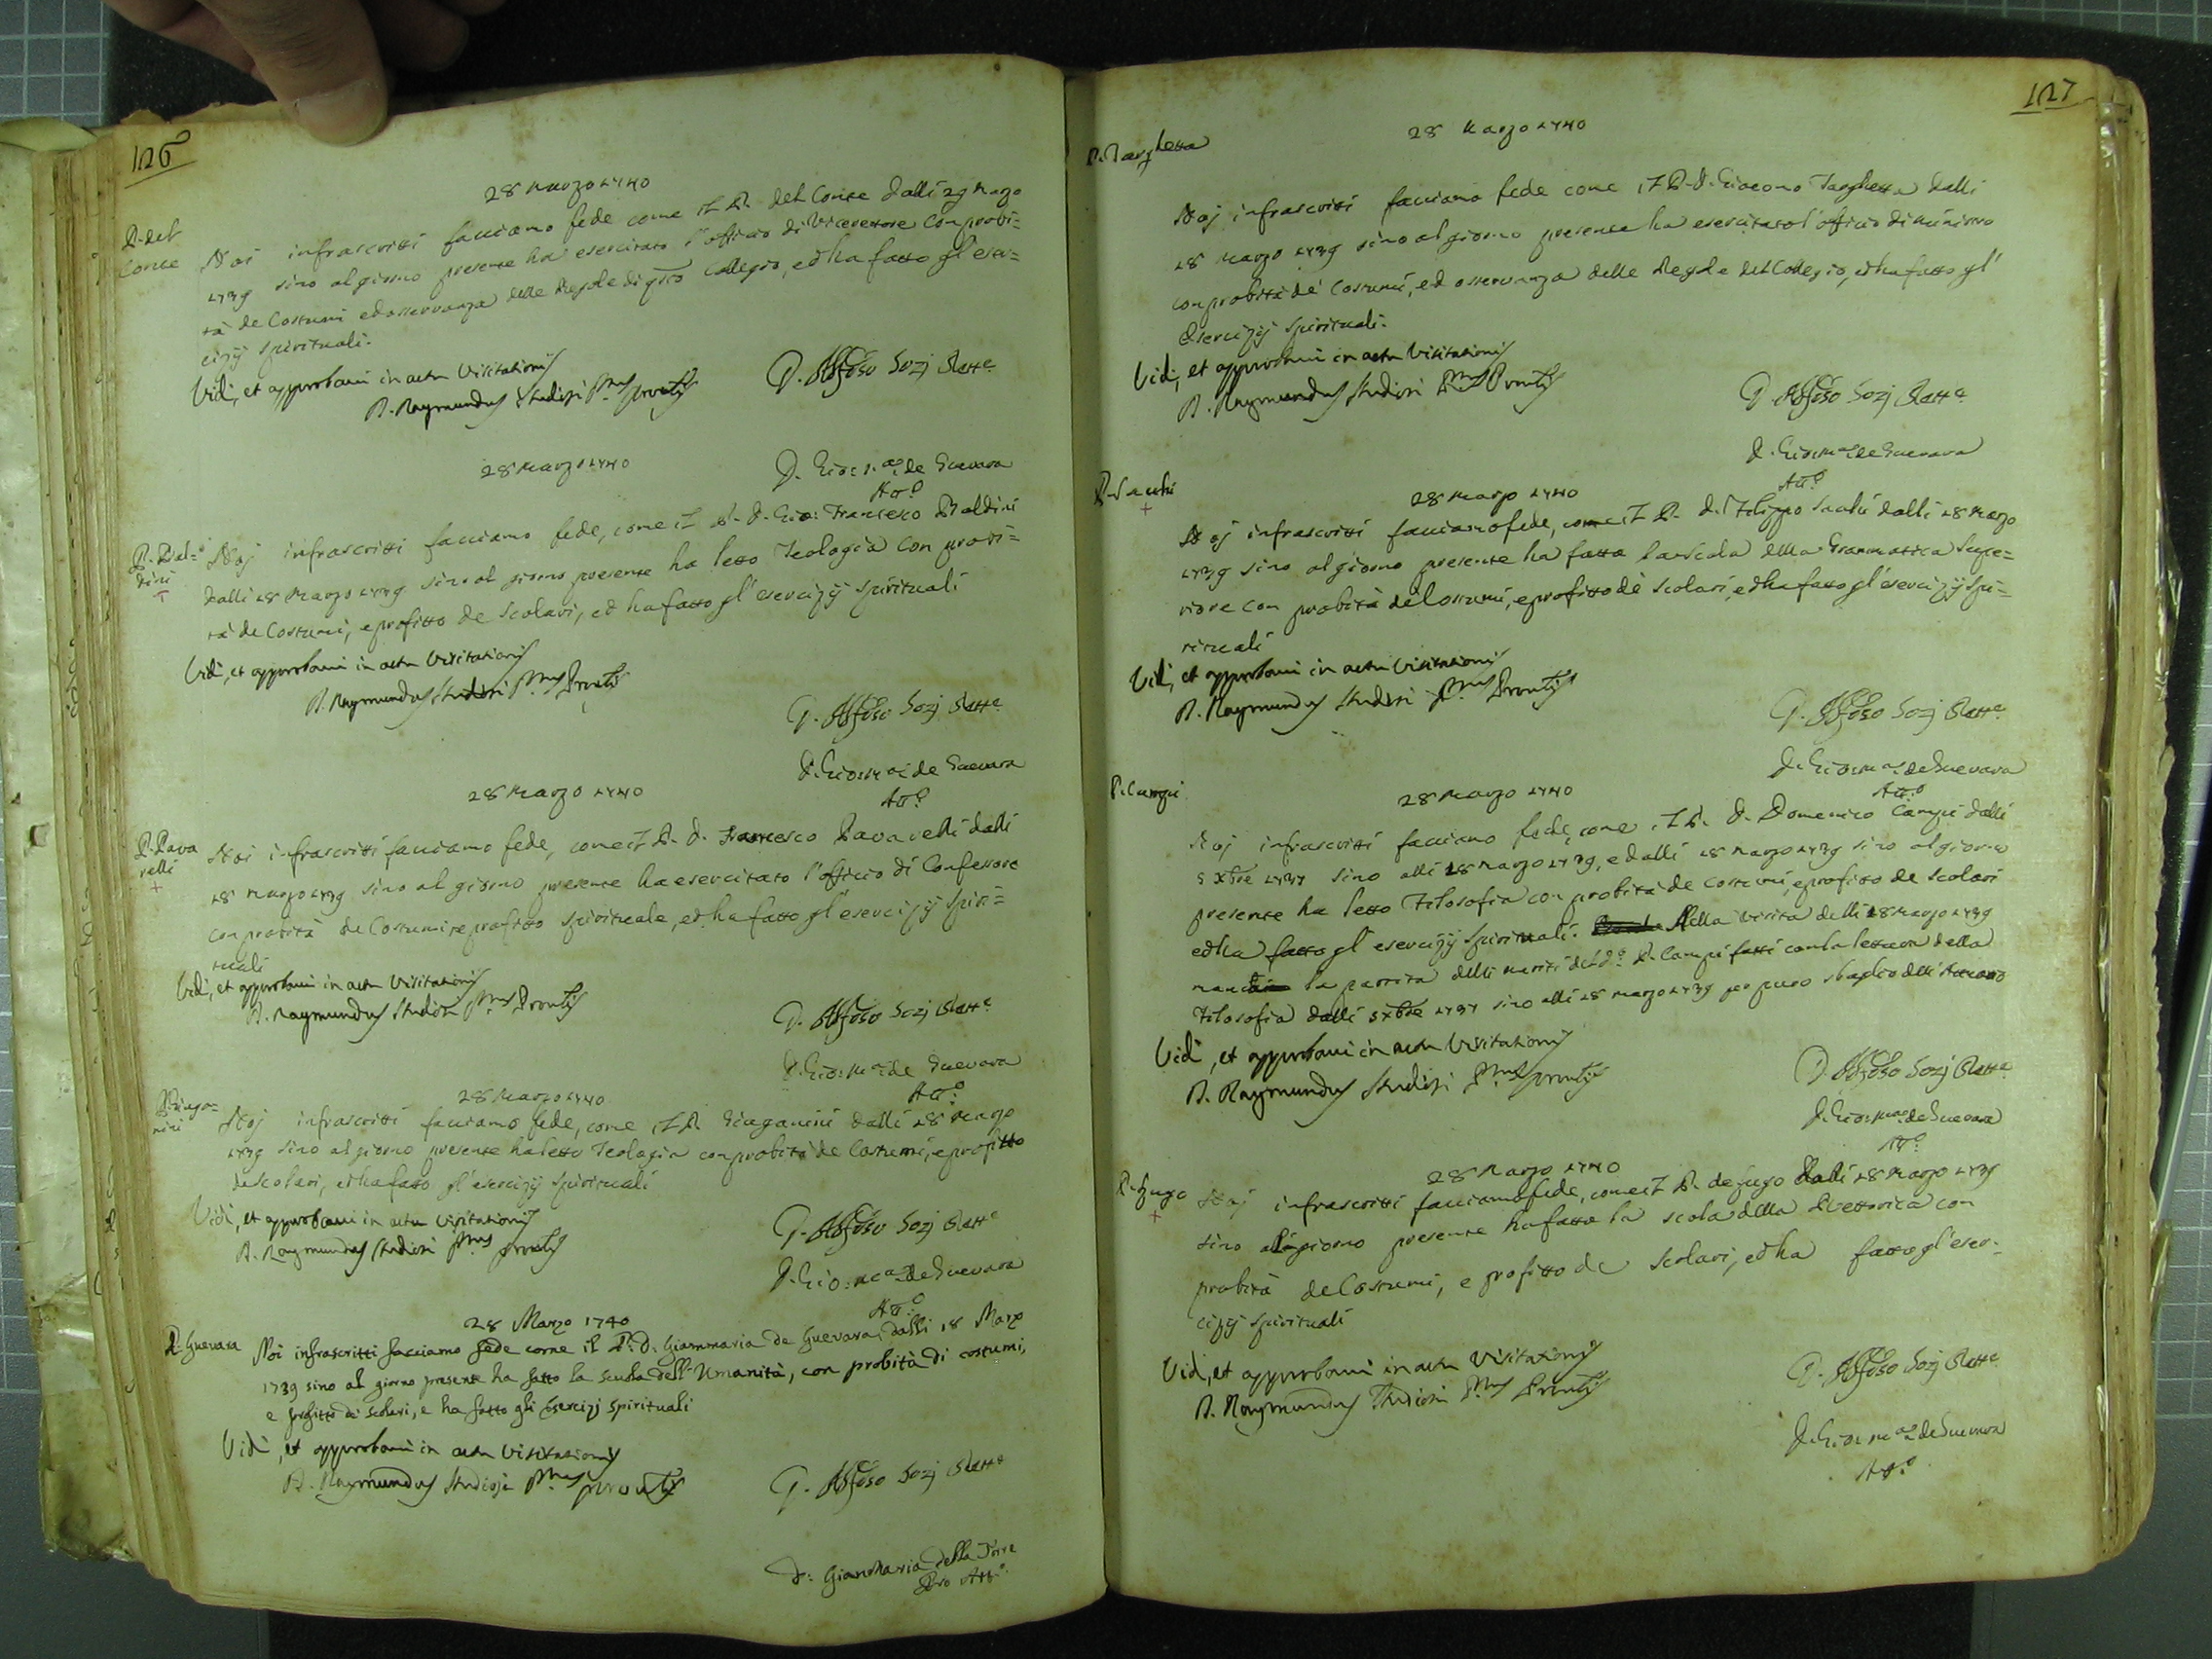 126
28 Marzo 1740
P. del
Conte
Noi infrascritti facciamo fede come il P. del Conte dalli 29 Marzo
1739 sino al giorno presente ha esercitato l'officio di Vicerettore con probi=
tà de Costumi ed osservanza delle Regole di qsto Collegio, ed ha fatto gl'eser=
cizij spirituali.
Vidi, et approbavi in actu Visitationis
D. Raymundus Studiosi
D. Alfoso Sozj Rette
D. Gio: Ma de Guevara
Atto
28 Marzo 1740
P. Bal=
dini
Noj infrascritti facciamo fede, come il P. D. Gio: Francesco Baldini
dalli 28 Marzo 1739 sino al giorno presente ha letto Teologia con probi=
tà de Costumi, e profitto de Scolari, ed ha fatto gl'esercizij spirituali
Vidi, et approbavi in actu Visitationis
D. Raymundus Studiosi
D. Alfoso Sozj Rette
D. Gio: Ma de Guevara
Atto
28 Marzo 1740
P. Pava
relli
Noi infrascritti facciamo fede, come il P. D. Francesco Pavarelli dalli
28 Marzo 1739 sino al giorno presente ha esercitato l'officio di Confessore
con probità de Costumi, e profitto spirituale, ed ha fatto gl'esercizij spiri=
tuali
Vidi, et approbavi in actu Visitationis
D. Raymundus Studiosi
D. Alfoso Sozj Rette
D. Gio: Ma de Guevara
Atto
28 Marzo 1740
Noj infrascritti facciamo fede, come il P. dalli 28 Marzo
1739 sino al giorno presente ha letto Teologia con probità de Costumi, e profitto
de Scolari, ed ha fatto gl'esercizij spirituali
Vidi, et approbavi in actu Visitationis
D. Raymundus Studiosi
D. Alfoso Sozj Rette
D. Gio: Ma de Guevara
Atto
28 Marzo 1740
P. Guevara
Noi infrascritti facciamo fede come il P. D. Giammaria de Guevara, dalli 28 Marzo
1739 sino al giorno presente ha fatto la scuola dell'Umanità, con probità di costumi,
e profitto di Scolari, e ha fatto gli Esercizj spirituali
Vidi, et approbavi in actu Visitationis
D. Raymundus Studiosi
D. Alfoso Sozj Rette
D: GianMaria della Torre
Pro Atto
127
28 Marzo 1740
P. Targhetta
Noj infrascritti facciamo fede come il P. D. Giacomo Targhetta dalli
28 Marzo 1739 sino al giorno presente ha esercitato l'officio di Ministro
con probità de' Costumi, ed osservanza delle Regole del Collegio, ed ha fatto gl'
Esercizij spirituali.
Vidi, et approbavi in actu Visitationis
D. Raymundus Studiosi
D. Alfoso Sozj Rette
D. Gio: Ma de Guevara
Atto
28 Marzo 1740
P. Sacchi
Noj infrascritti facciamo fede, come il P. D. Filippo Sacchi dalli 28 Marzo
1739 sino al giorno presente ha fatto la scola della Grammatica Supe=
riore con probità de Costumi, e profitto de scolari, ed ha fatto gl'esercizij spi=
rituali
Vidi, et approbavi in actu Visitationis
D. Raymundus Studiosi
D. Alfoso Sozj Rette
D. Gio: Ma de Guevara
Atto
28 Marzo 1740
P. Campi
Noj infrascritti facciamo fede, come il P. D. Domenico Campi dalli
5 Xbre 1737 sino alli 28 Marzo 1739, e dalli 28 Marzo 1739 sino al giorno
presente ha letto Filosofia con probità de Costumi, e profitto de Scolari
ed ha fatto gl'esercizij spirituali. Nella Visita delli 28 Marzo 1739
la partita delli meriti del do P. Campi fatti con la lettura della
Filosofia dalli 5 Xbre 1737 sino alli 28 Marzo 1739 per puro sbaglio dell'Attuario
Vidi, et approbavi in actu Visitationis
D. Raymundus Studiosi
D. Alfoso Sozj Rette
D. Gio: Ma de Guevara
Atto
28 Marzo 1740
P. Lugo
Noj infrascritti facciamo fede, come il P. de Lugo dalli 28 Marzo 1739
sino al giorno presente ha fatto la scola della Rettorica con
probità de Costumi, e profitto de Scolari, ed ha fatto gl'eser=
cizij spirituali
Vidi, et approbavi in actu Visitationis
D. Raymundus Studiosi
D. Alfoso Sozj Rette
D. Gio: Ma de Guevara
Atto